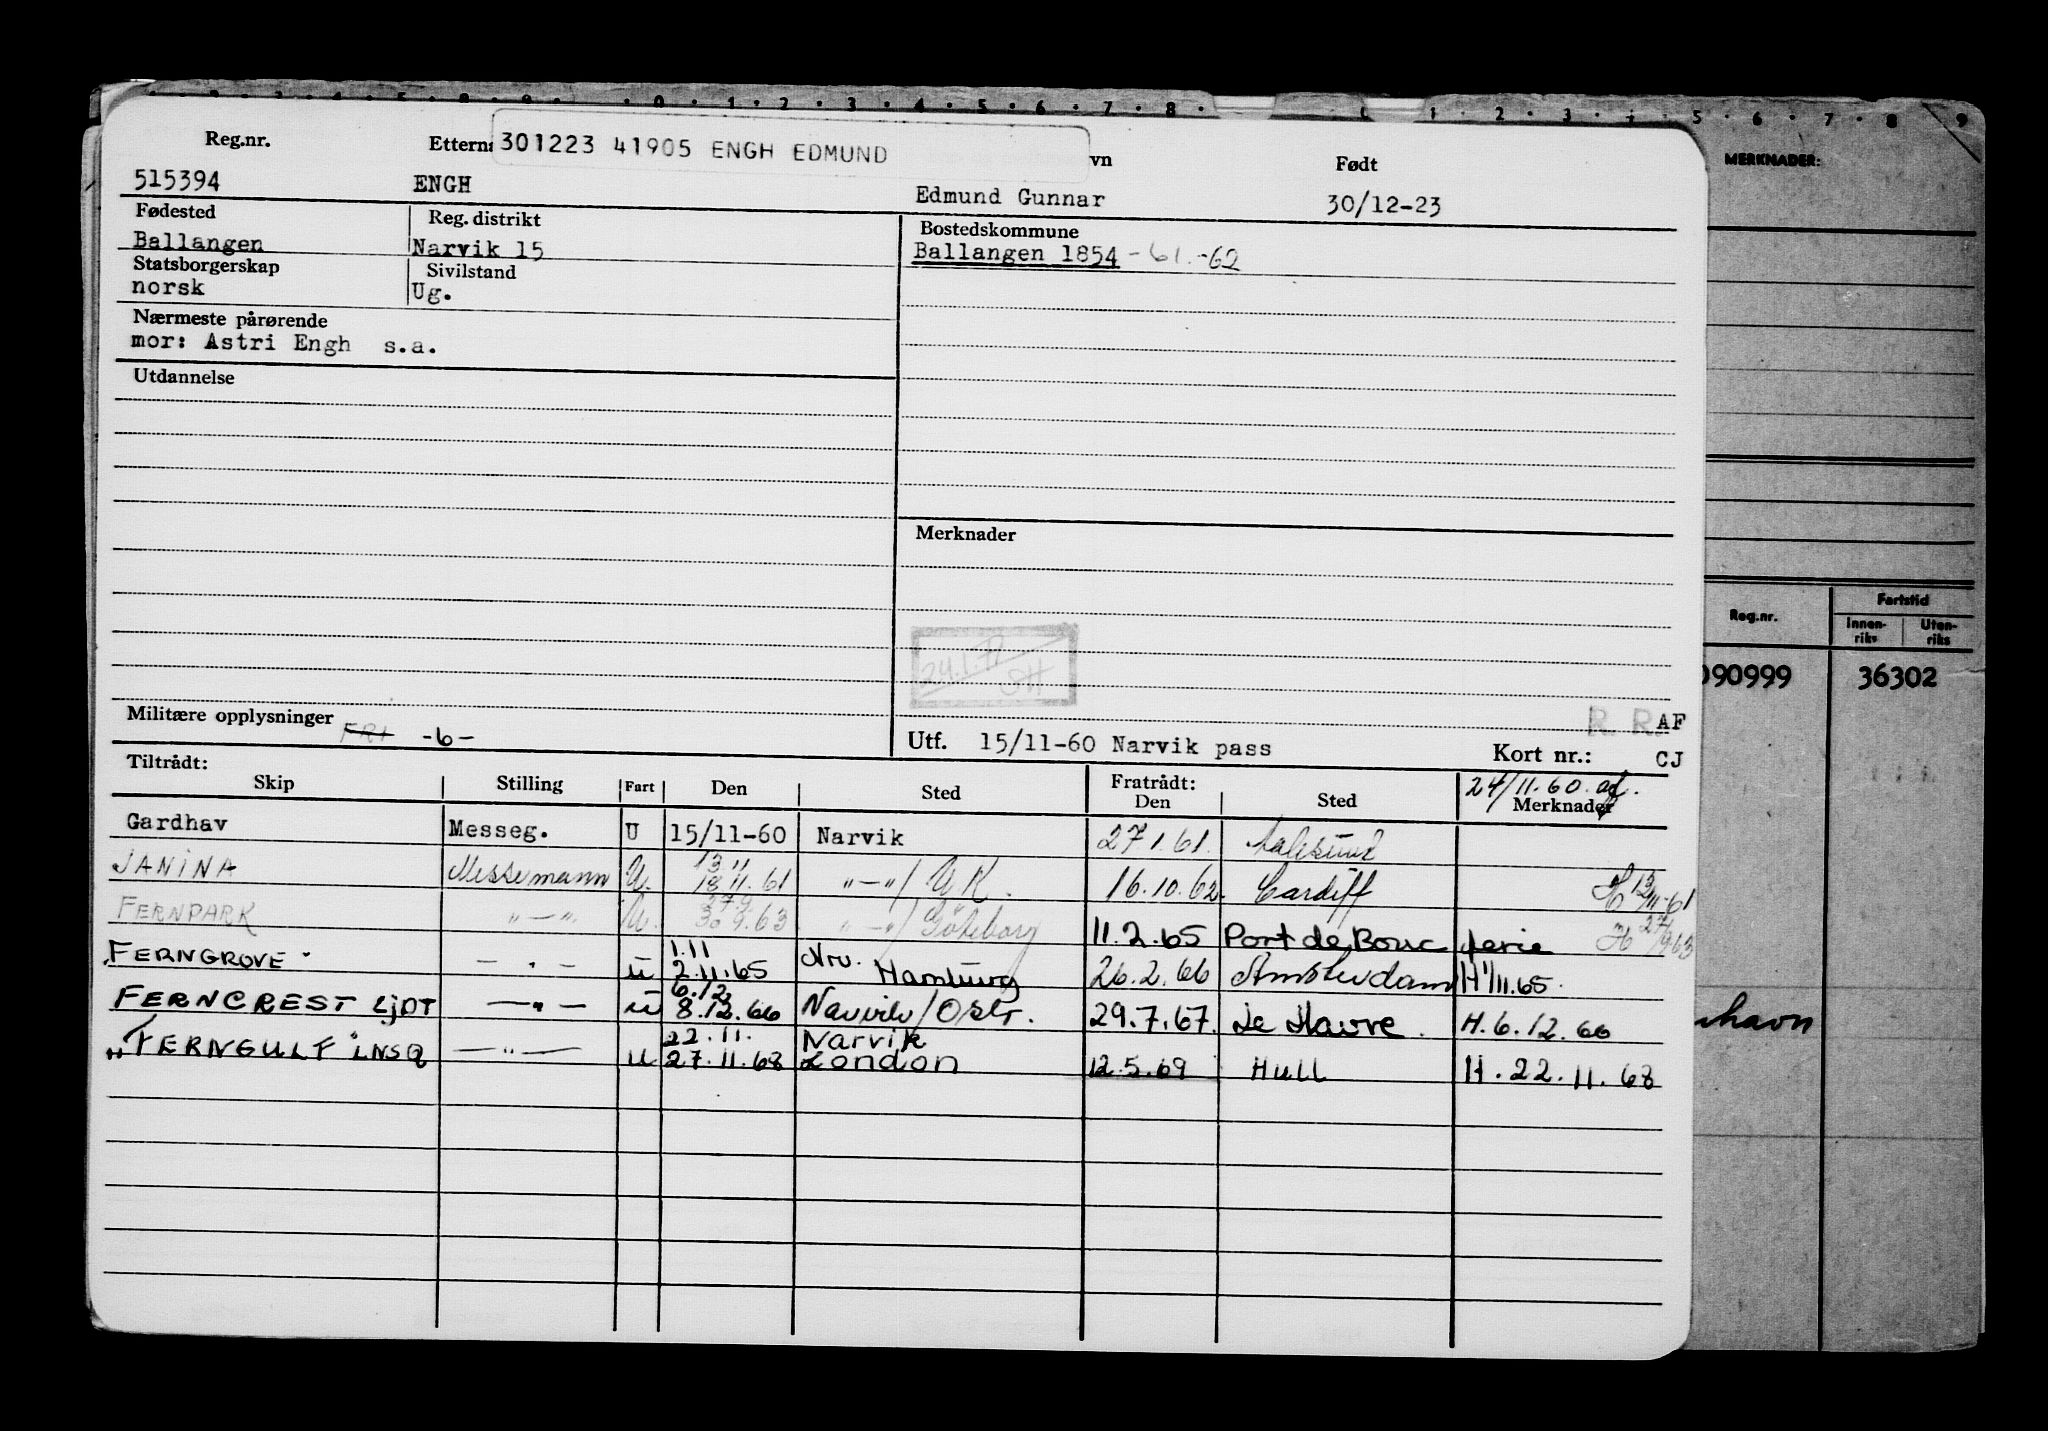 301223 41905 ENGH EDMUND
Reg.nr. Etterna vn Født
515394 ENGH Edmund Gunnar 30/12-23
Fødested Reg. distrikt Bostedskommune
Ballangen Narvik 15 Ballangen 1854 - 61. -62
Statsborgerskap Sivilstand
norsk Ug.
Nærmeste pårørende
mor: Astri Engh s.a.
Utdannelse
Merknader
24.1.71
Militære opplysninger FRI -6-
R R AF
Utf. 15/11-60 Narvik pass Kort nr.: CJ
Tiltrådt: Fratrådt: 24/11.60.
Skip Stilling Fart Den Sted Den Sted Merknader
Gardhav Messeg. U 15/11-60 Narvik 27.1.61. Aalesund
13.11
JANINA Messemann U. 18.11.61 "—"/ UK. 16.10.62. Cardiff H 13/11-61
27.9
FERNPARK "—" U. 30.9.63 "—"/ Göteborg 11.2.65 Port de Bouc ferie H 27/9.63
1.11 Nrv.
FERNGROVE - " - u 2.11.65 Hamburg 26.2.66 Amsterdam H 1/11.65.
6.12
FERNCREST LJDT —"— u 8.12.66 Narvik/Oslo. 29.7.67. Le Havre. H. 6.12.66
22.11. Narvik
"FERNGULF" LNSQ —"— u 27.11.68 London 12.5.69 Hull H. 22.11.68
MERKNADER:
Reg.nr. Fartstid
Innenriks Utenriks
090999 36302
havn